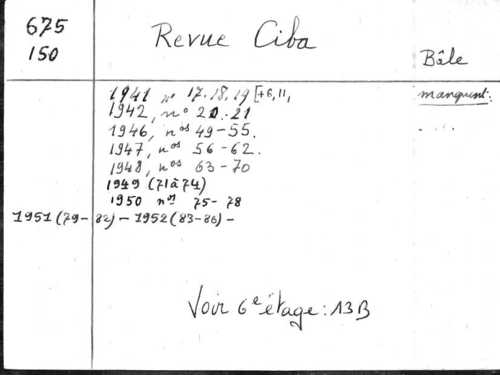 675
150
Revue Ciba
Bâle
manquent:
1941 nos 17.18.19 [+6,11,
1942, nos 20.21
1946, nos 49-55.
1947, nos 56-62.
1948, nos 63-70
1949 (71 à 74)
1950 nos 75-78
1951 (79-82) - 1952 (83-86) -
Voir 6e étage: 13B